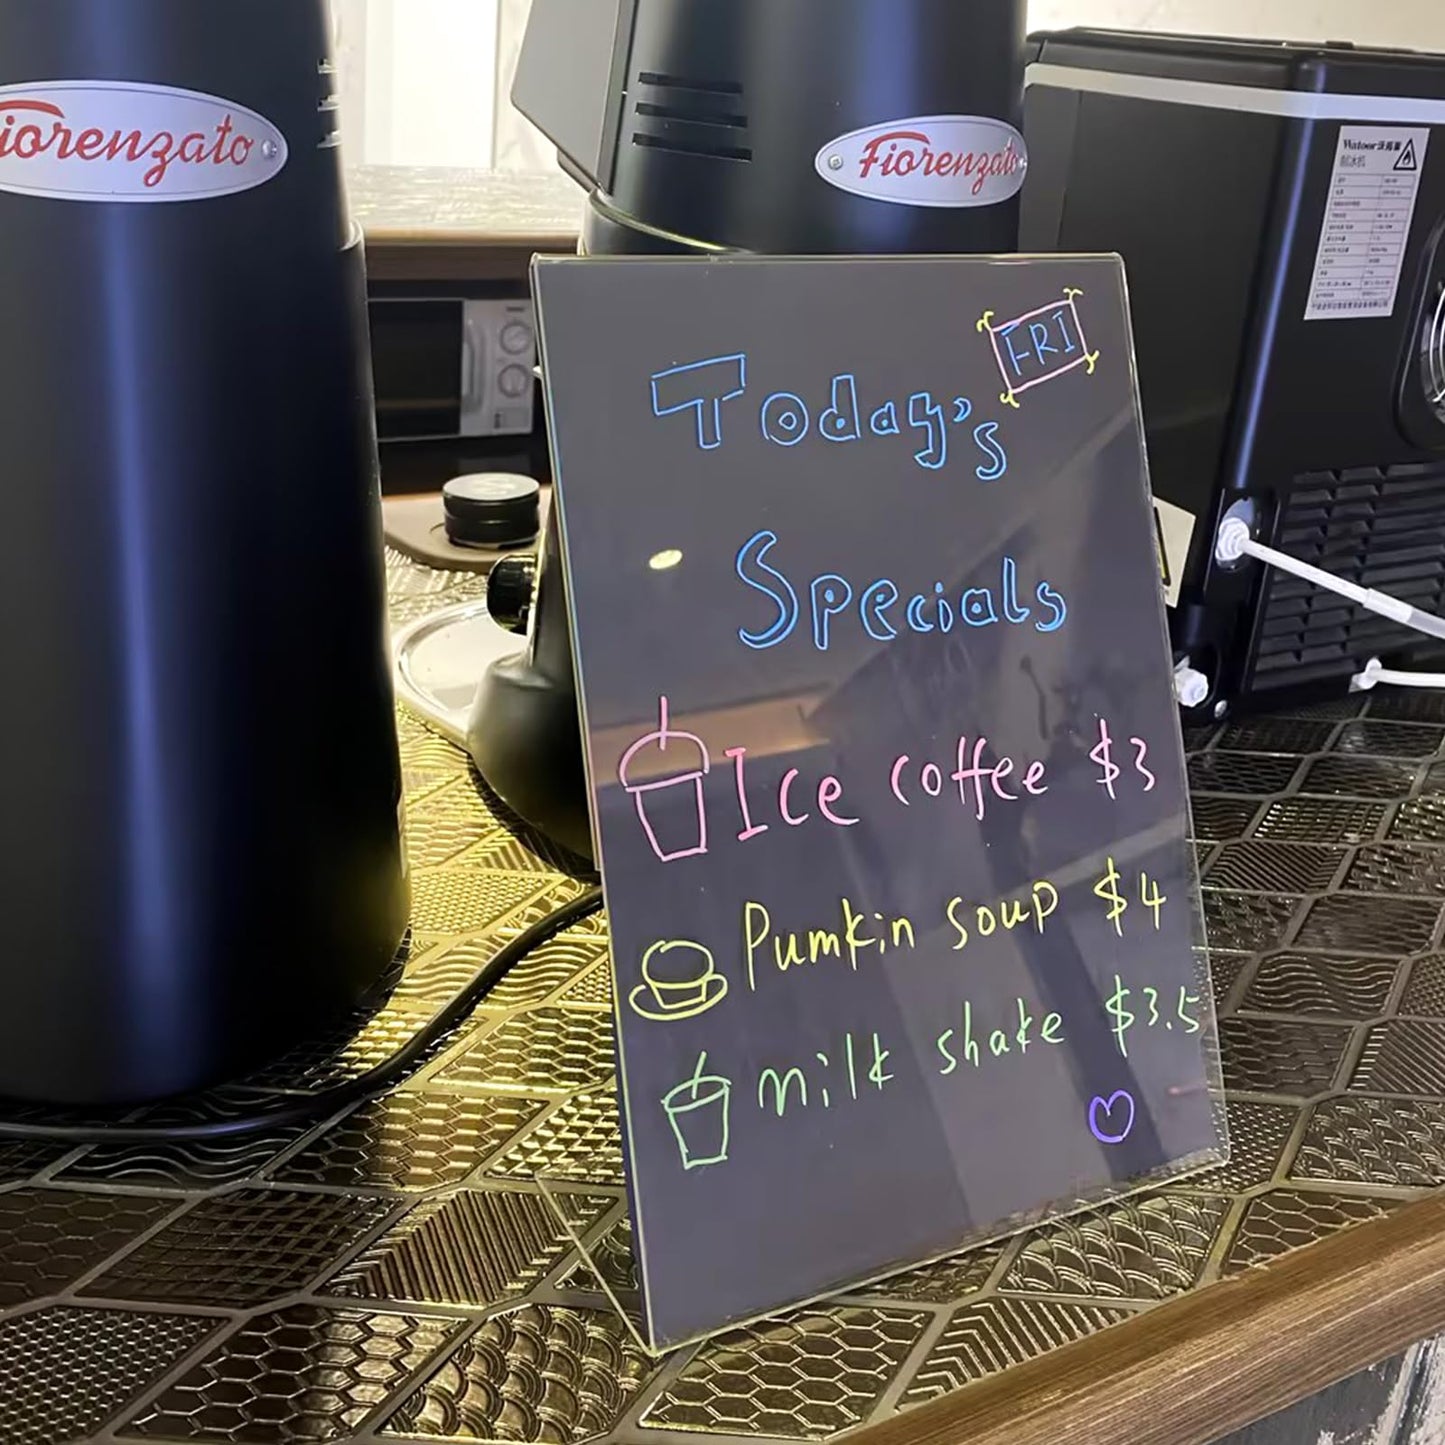 Fiorenzato
Fiorenzato
Watoor沃拓莱
制冰机
FRI
Today's
Specials
Ice coffee $3
Pumkin soup $4
milk shake $3.5